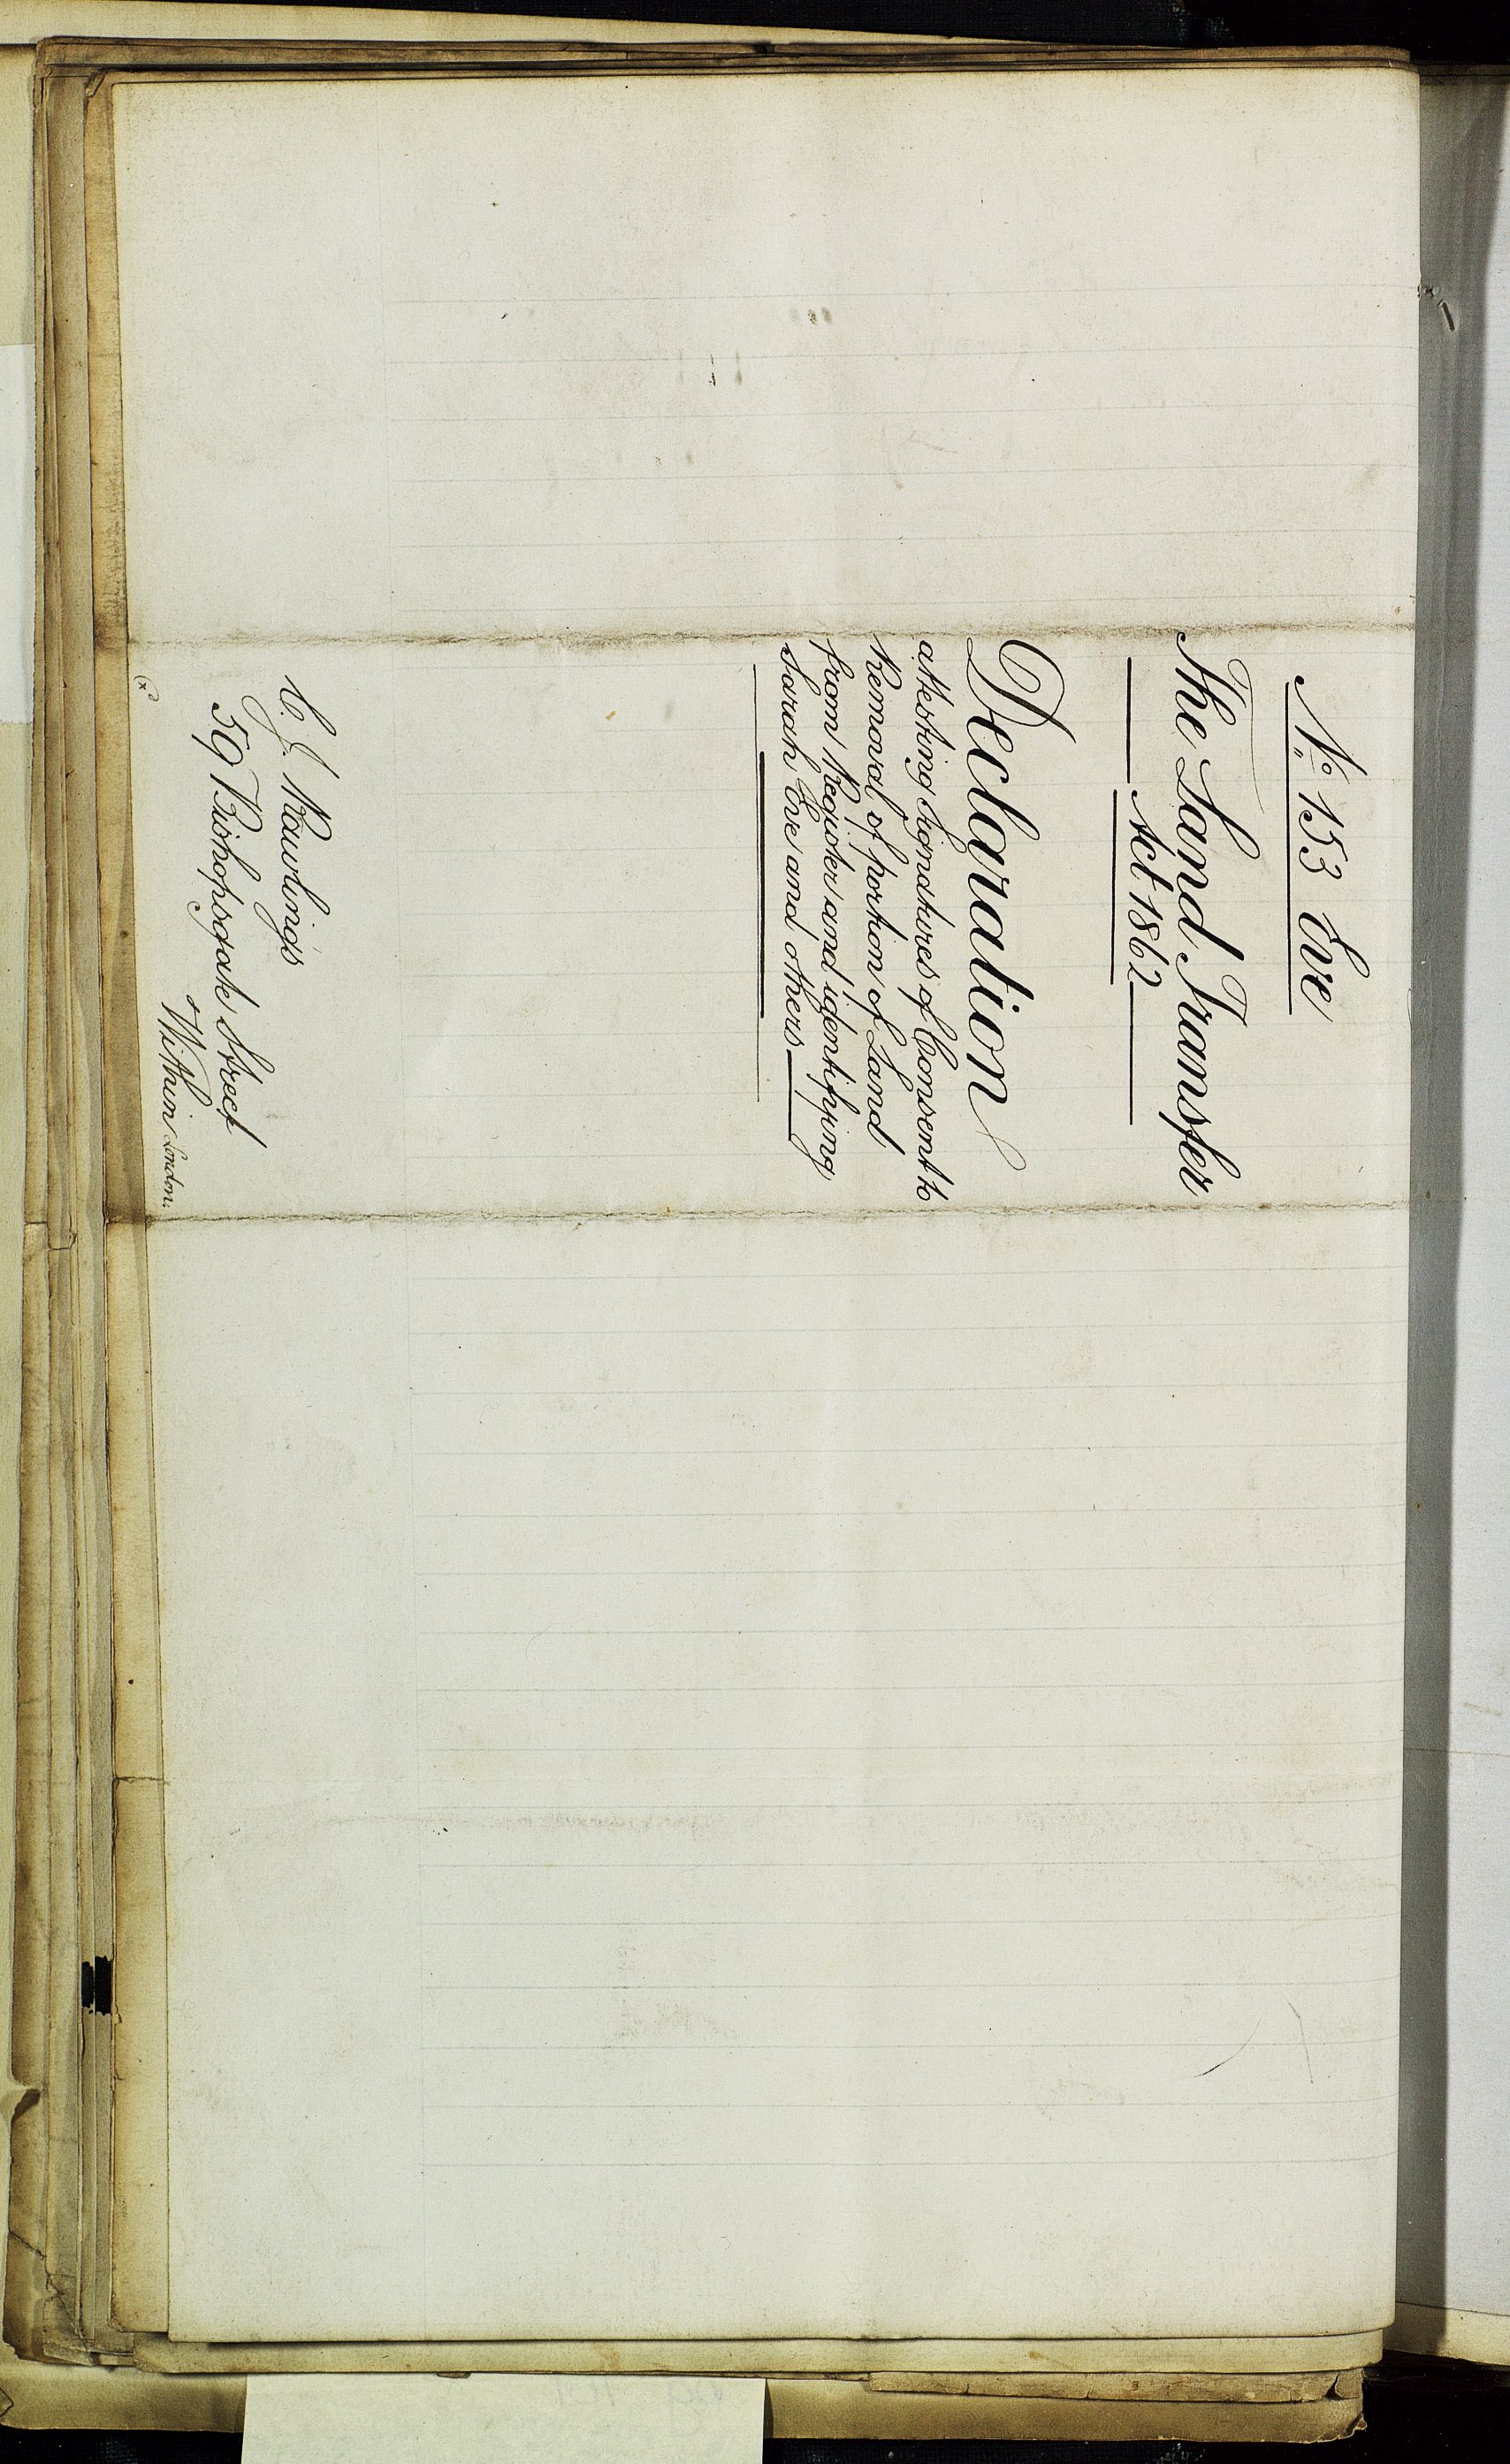 No. 153 Eve
The Land Transfer
Act 1862
Declaration
attesting signatures of Consent to
Removal of portion of Land
from Register and identifying
Sarah Eve and others
C. J. Rawlings
59 Bishopsgate Street
Within London.